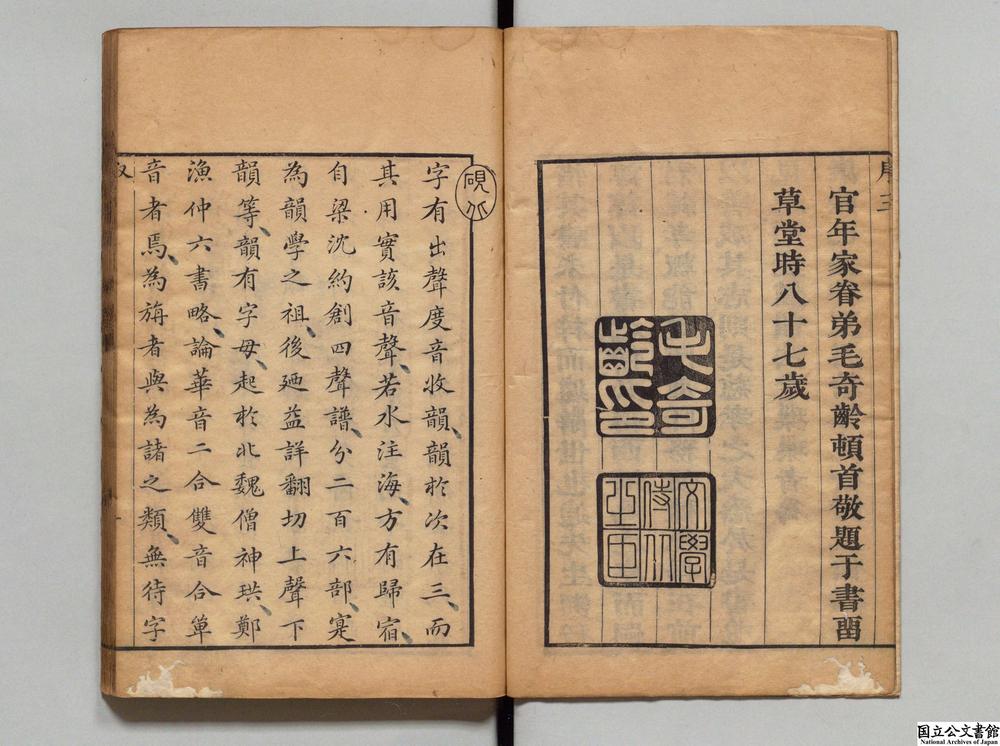 序 三
官年家眷弟毛奇齡頓首敬題于書留
草堂時八十七歲
毛奇
齡印
文學
侍從
之臣
硯北
字有出聲度音收韻韻於次在三而
其用實該音聲若水注海方有歸宿
自梁沈約創四聲譜分二百六部寔
為韻學之祖後廼益詳翻切上聲下
韻等韻有字母起於北魏僧神珙鄭
漁仲六書略論華音二合雙音合單
音者焉為旃者與為諸之類無待字
国立公文書館
National Archives of Japan